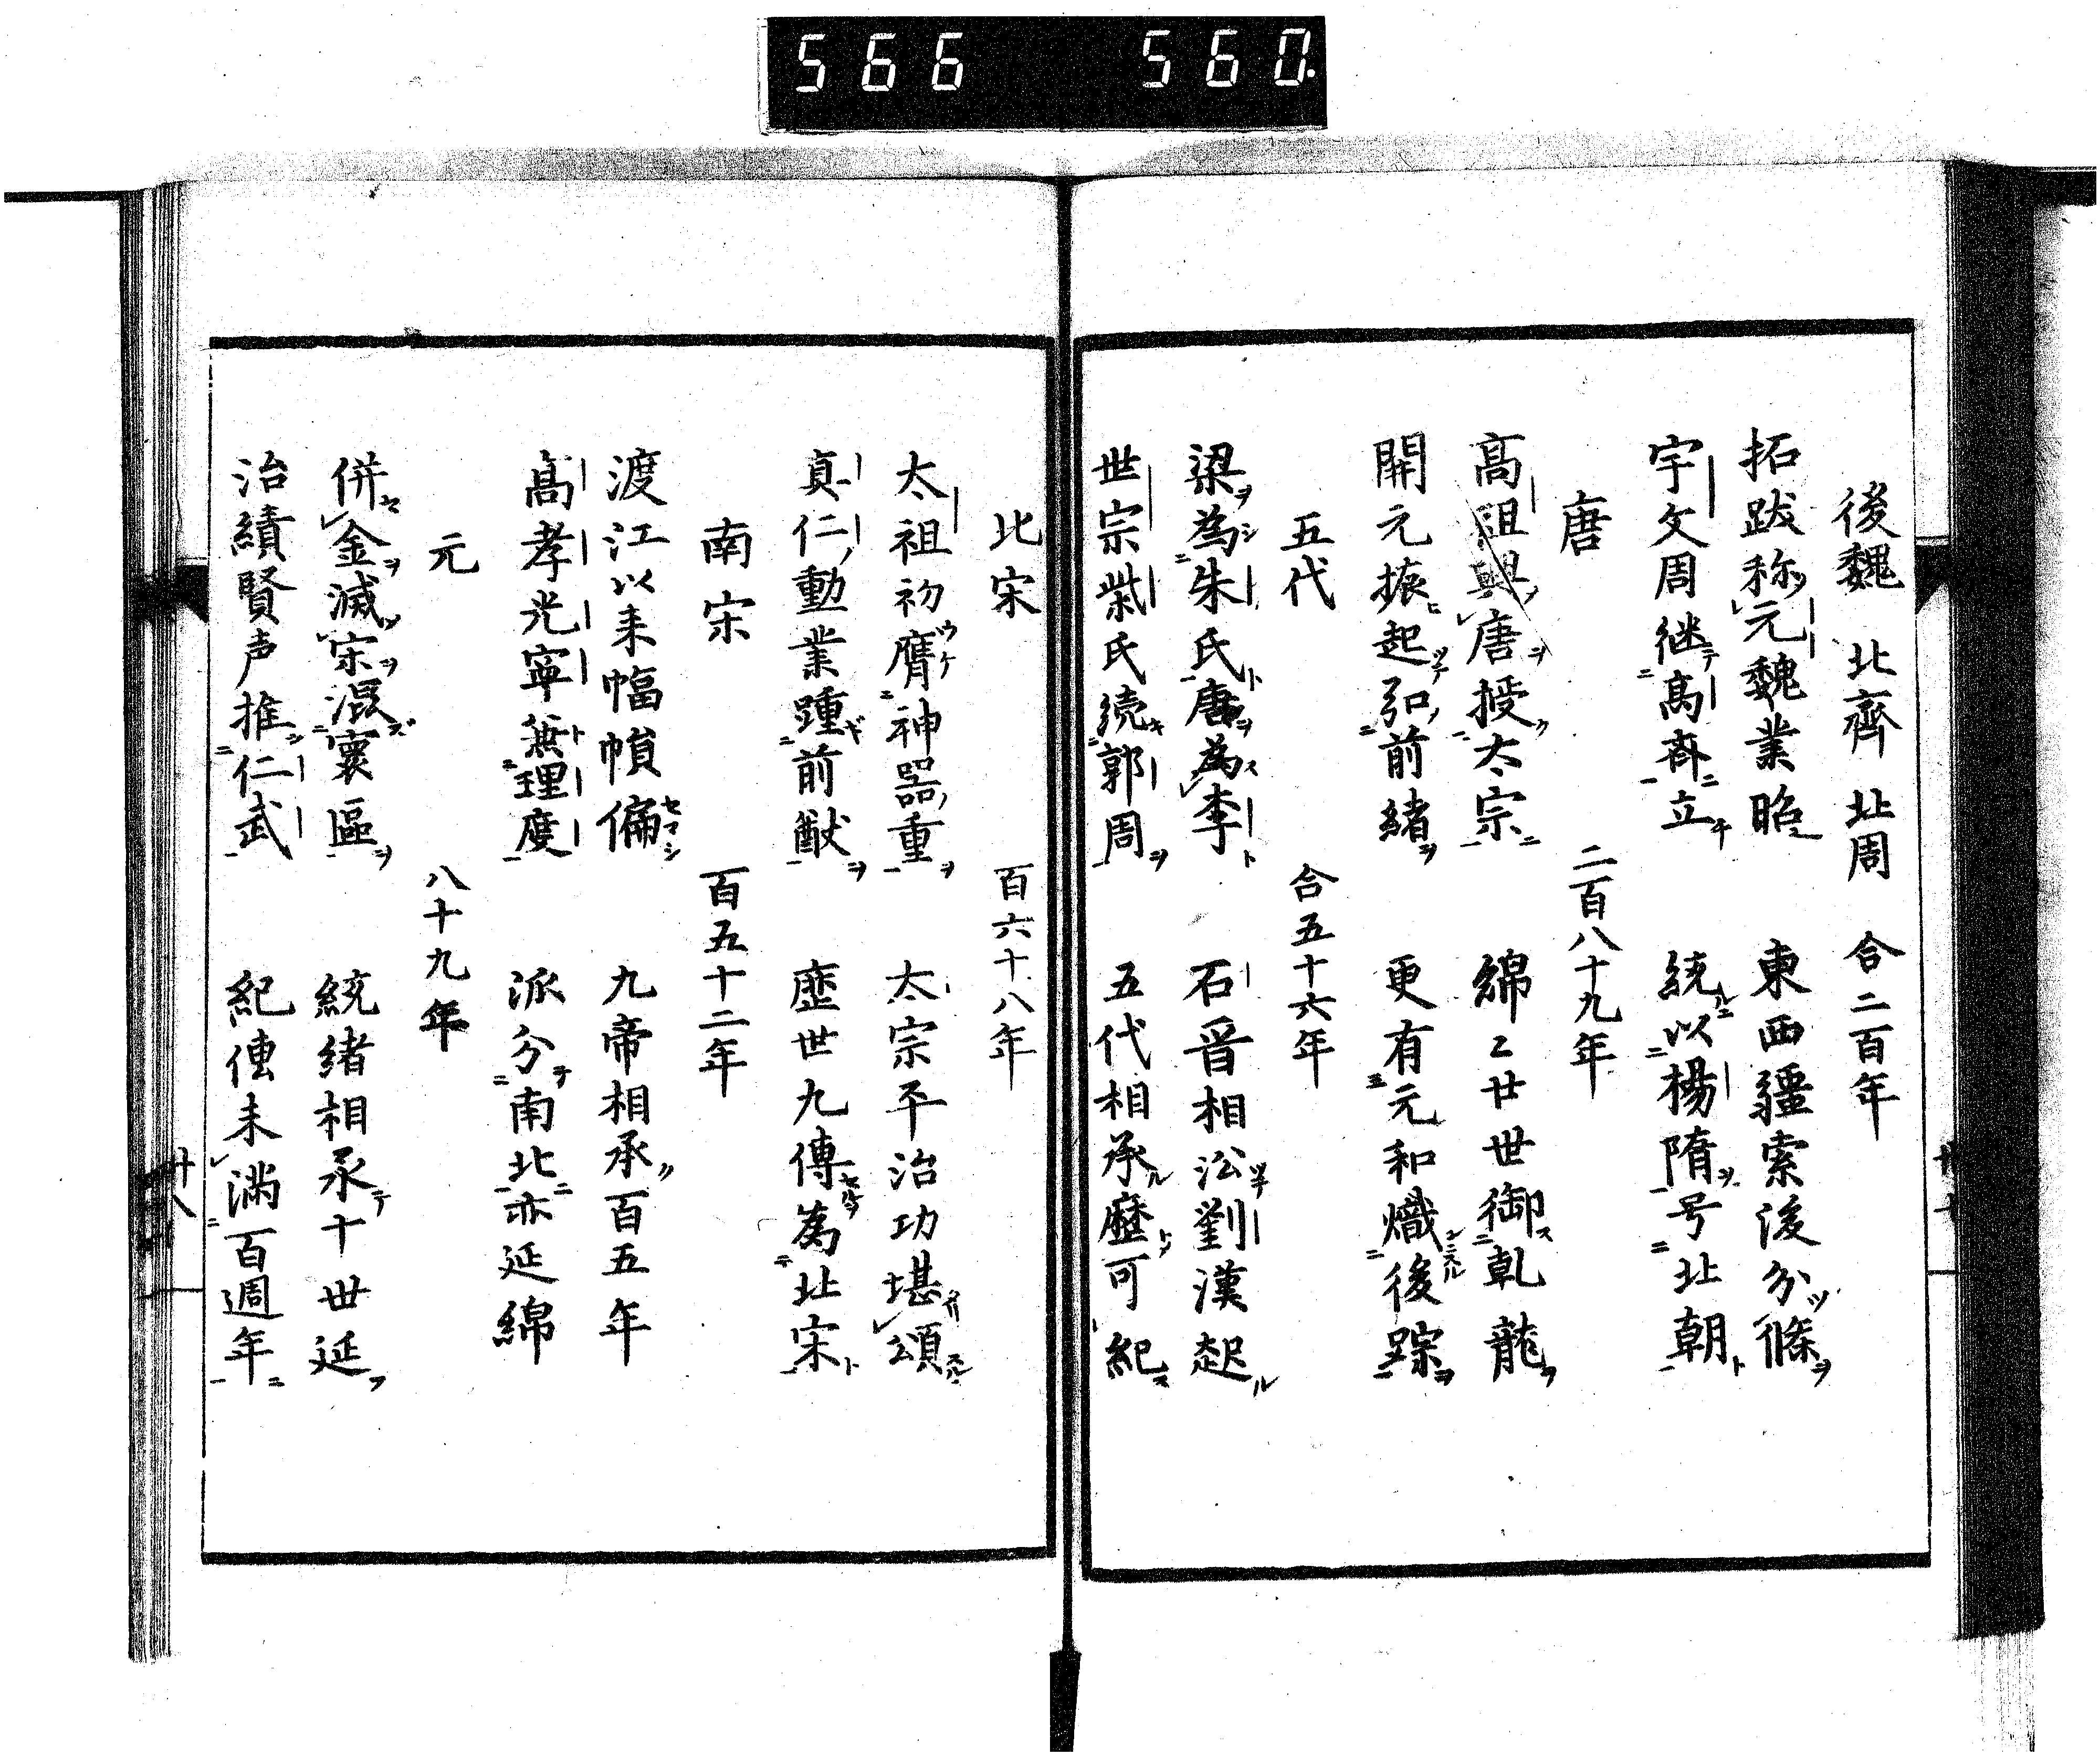 566 560.
後魏 北齊 北周 合二百年
拓跋称元魏業昭 東西疆索後分條
宇文周継高斉立 統以楊隋号北朝
唐 二百八十九年
高祖興唐授太宗 綿〻廿世御乹龍
開元振起弘前緒 更有元和熾後踪
五代 合五十六年
梁為朱氏唐為李 石晋相㳂劉漢起
世宗柴氏続郭周 五代相承歴可紀
北宋 百六十八年
太祖初膺神器重 太宗平治功堪頌
真仁勳業踵前猷 歴世九傳為北宋
南宋 百五十二年
渡江以来幅幀偏 九帝相承百五年
高孝光寧兼理度 派分南北亦延綿
元 八十九年
併金滅宋混寰區 統緒相承十世延
治績賢声推仁武 紀傳未満百週年
廿八